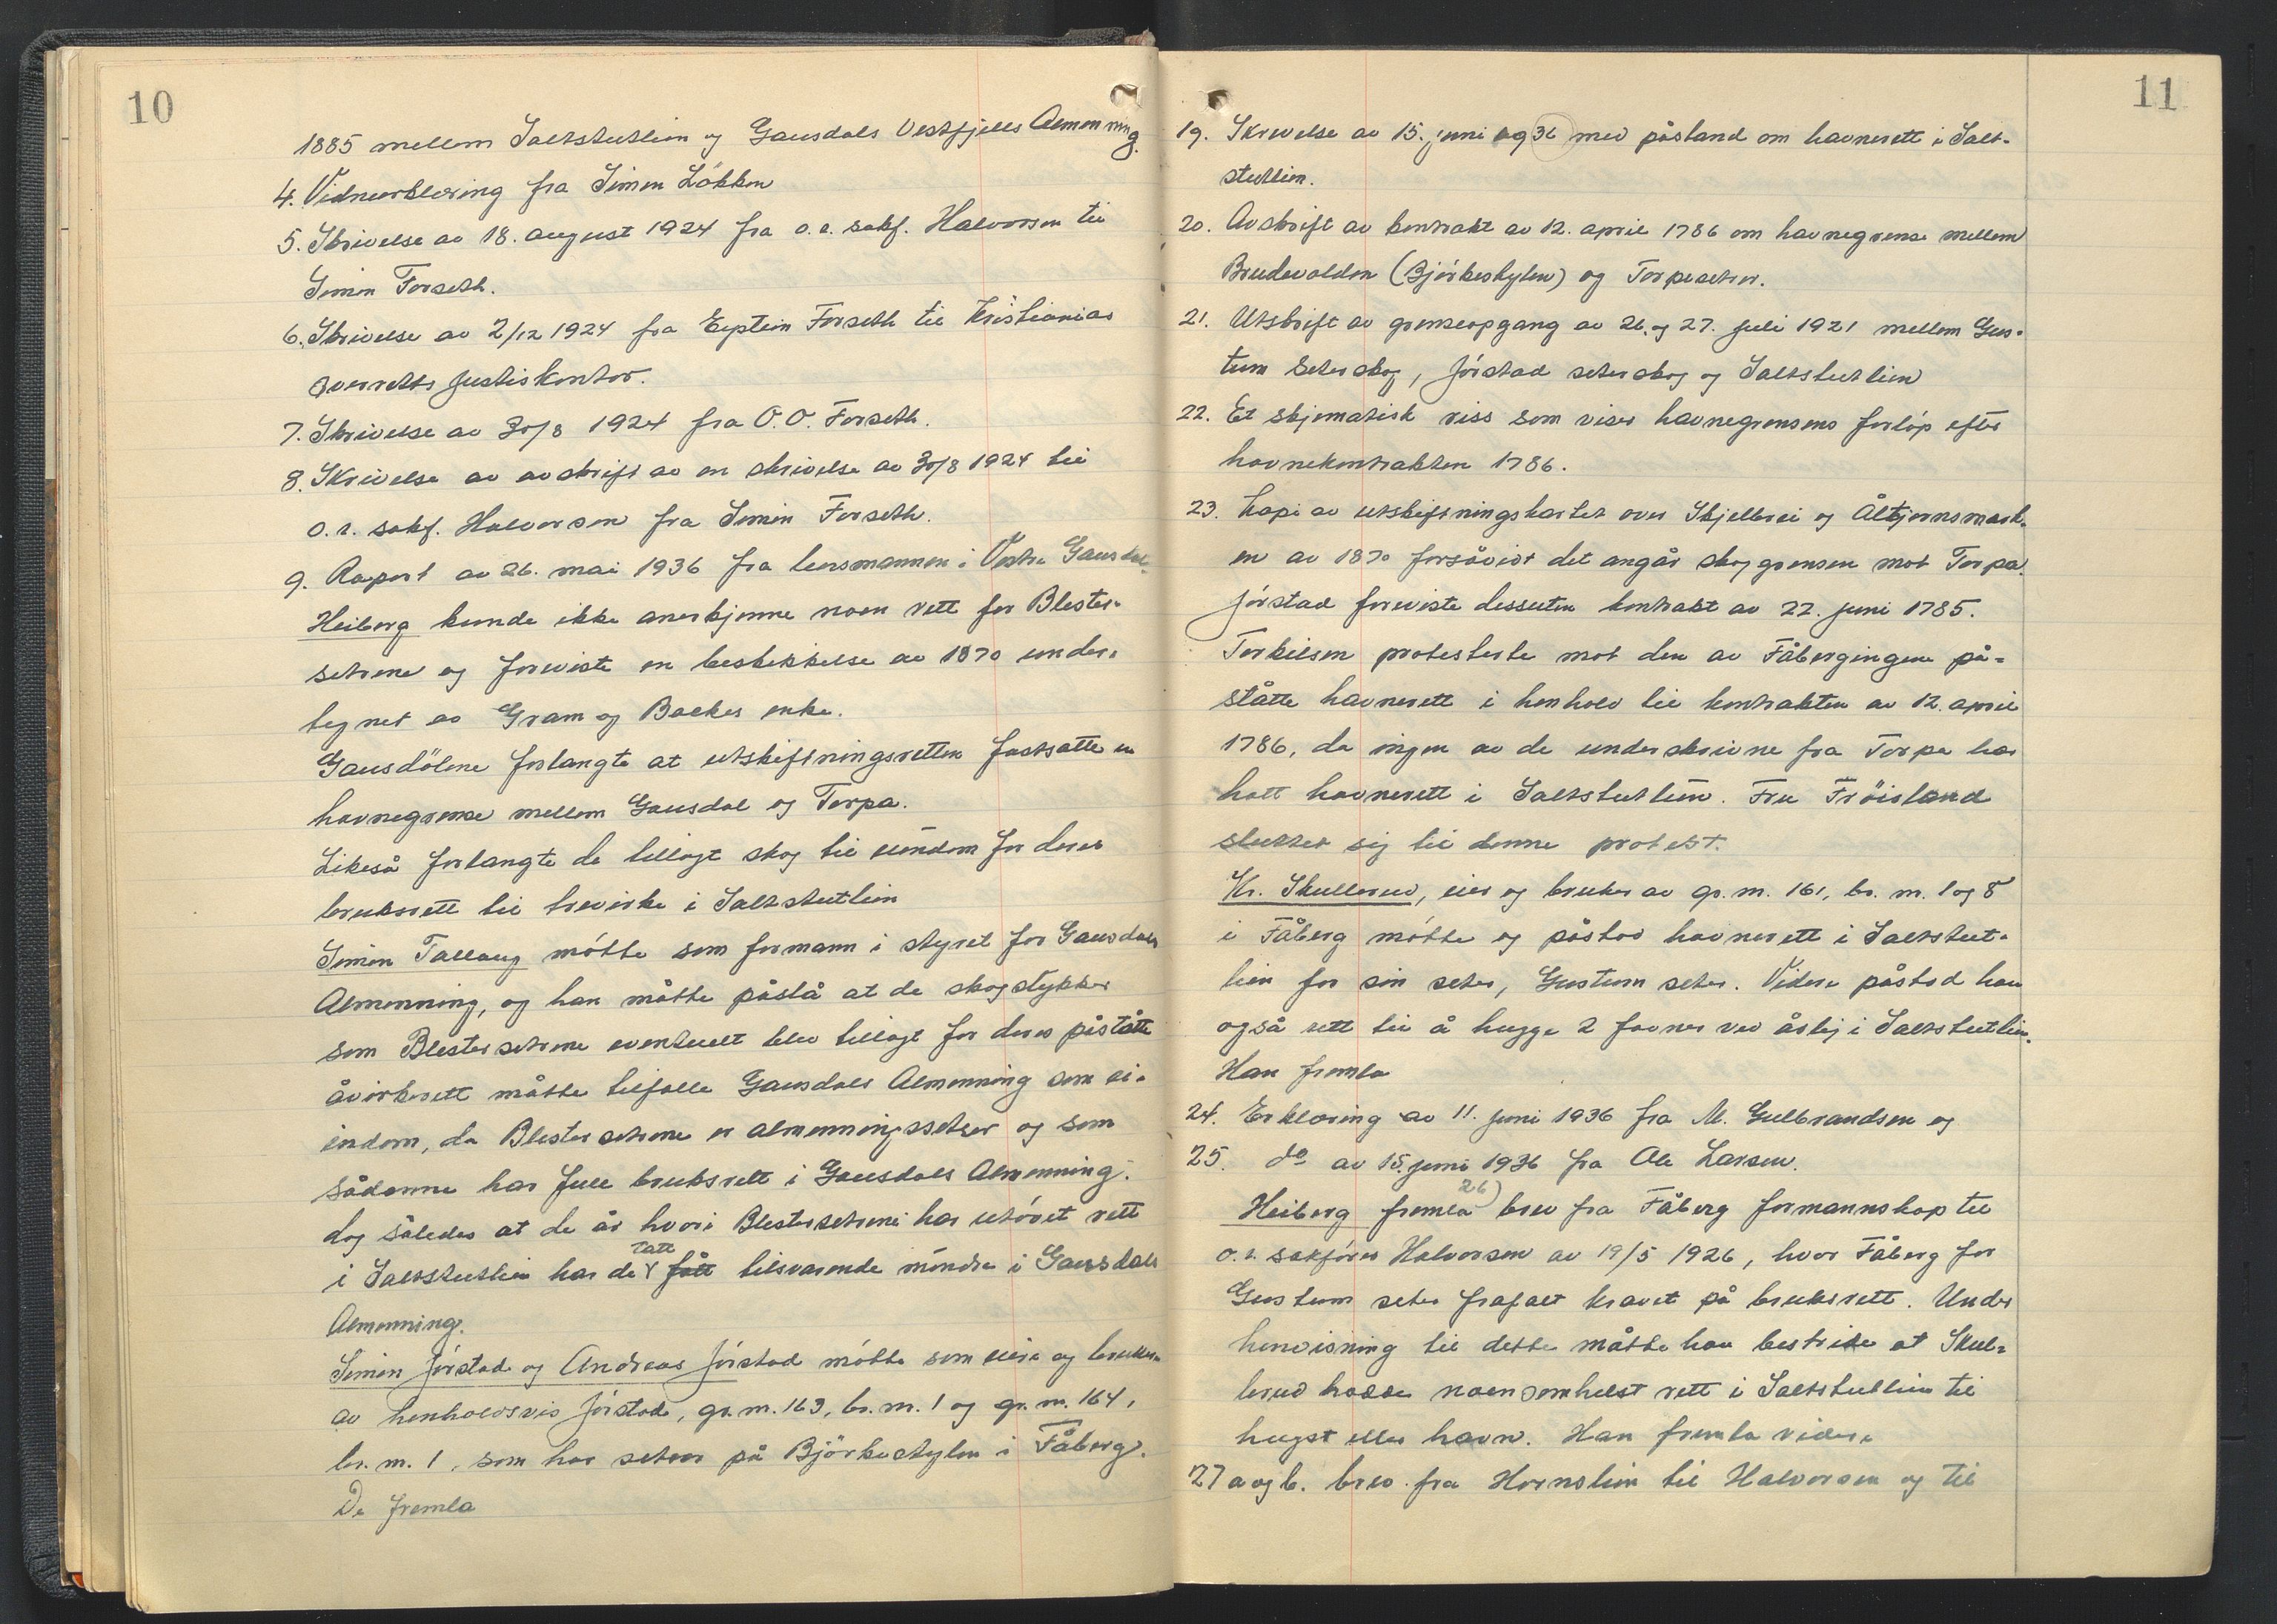 10
1885 mellem Saltstutlien og Gausdals Vestfjells Almenning.
4. Vidneerklæring fra Simen Lökken
5. Skrivelse av 18. august 1924 fra o.r. sakf. Halvorsen til
Simen Forseth.
6. Skrivelse av 2/12 1924 fra Eystein Forseth til Kristianias
Overretts Justiskontor.
7. Skrivelse av 30/8 1924 fra O.O. Forseth.
8. Skrivelse av avskrift av en skrivelse av 30/8 1924 til
o.r. sakf. Halvorsen fra Simen Forseth.
9. Raport av 26. mai 1936 fra lensmannen i Vestre Gausdal.
Heiberg kunde ikke anerkjenne noen rett for Blester-
setrene og foreviste en beskikkelse av 1870 under-
tegnet av Gram og Backes enke.
Gausdölene forlangte at utskiftningsretten fastsatte en
havnegrense mellem Gausdal og Torpa.
Likeså forlangte de tillagt skog til eiendom for deres
bruksrett til trevirke i Saltstutlien
Simen Tallaug mötte som formann i styret for Gausdals
Almenning, og han måtte påstå at de skogstykker
som Blestersetrene eventuelt blev tillagt for deres påståtte
åvirkesrett måtte tilfalle Gausdals Almenning som ei-
endom, da Blestersetrene er almenningssetrer og som
sådanne har full bruksrett i Gausdals Almenning.
dog således at de år hvori Blestersetrene har utövet rett
i Saltstutlien har de tatt fått tilsvarende mindre i Gausdals
Almenning.
Simen Jörstad og Andreas Jörstad mötte som eiere og brukere
av henholdsvis Jörstad, gr.nr. 163, br.nr. 1 og gr.nr. 164,
br.nr. 1, som har setrer på Björkestylen i Fåberg.
De fremla
11
19. Skrivelse av 15. juni og 36 med påstand om havnerett i Salt-
stutlien.
20. Avskrift av kontrakt av 12. april 1786 om havnegrense mellem
Brudevolden (Björkestylen) og Torpesetrer.
21. Utskrift av grenseopgang av 26. og 27. juli 1921 mellem Gus-
tum seterskog, Jörstad seterskog og Saltstutlien
22. Et skjematisk riss som viser havnegrensens forlöp efter
havnekontrakten 1786.
23. Kopi av utskiftningskartet over Skjellrei og Åltjernsmark-
en av 1870 forsåvidt det angår skoggrensen mot Torpa.
Jörstad foreviste dessuten kontrakt av 22. juni 1785.
Torkilsen protesterte mot den av Fåbergingene på-
ståtte havnerett i henhold til kontrakten av 12. april
1786, da ingen av de underskrivne fra Torpa har
hatt havnerett i Saltstutlien. Fru Fröisland
sluttet sig til denne protest.
Kr. Skullerud, eier og bruker av gr.nr. 161, br.nr. 1 og 8
i Fåberg mötte og påstod havnerett i Saltstut-
lien for sin seter, Gustum seter. Videre påstod han
også rett til å hugge 2 favner ved årlig i Saltstutlien.
Han fremla
24. Erklæring av 11. juni 1936 fra M. Gulbrandsen og
25. do av 15. juni 1936 fra Ole Larsen.
Heiberg fremla 26) brev fra Fåberg formannskap til
o.r. sakförer Halvorsen av 19/5 1926, hvor Fåberg for
Gustum seter frafalt kravet på bruksrett. Under
henvisning til dette måtte han bestride at Skul-
lerud hadde noensomhelst rett i Saltstutlien til
hugst eller havn. Han fremla videre
27 a og b. brev fra Hornslien til Halvorsen og til